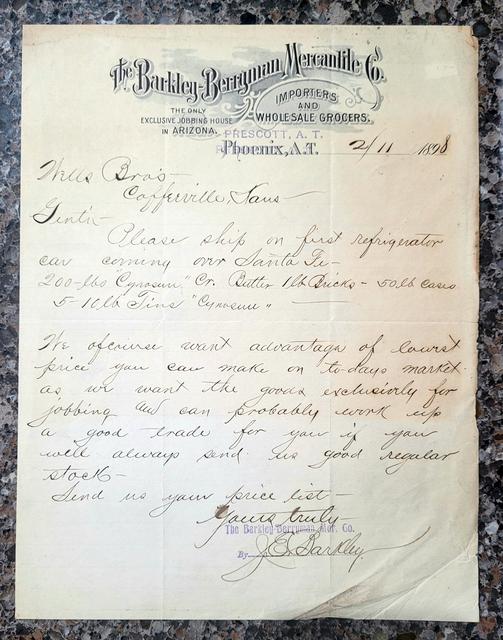 The Barkley-Berryman Mercantile Co.
IMPORTERS
AND
WHOLESALE GROCERS.
THE ONLY
EXCLUSIVE JOBBING HOUSE
IN ARIZONA.
PRESCOTT, A. T.
Phoenix, A.T. 2/11 1898
Wells Bros
Cofferville Kans
Gents
Please ship on first refrigerator
car coming over Santa Fe -
200-lbs "Cynosure" Cr. Butter 1 lb Bricks - 50 lb cases
5-10 lb Tins "Cynosure"
We ofcourse want advantage of lowest
price you can make on to-days market
as we want the goods exclusively for
jobbing and can probably work up
a good trade for you if you
will always send us good regular
stock -
Send us your price list -
Yours truly
The Barkley-Berryman Mer. Co.
By J. E. Barkley